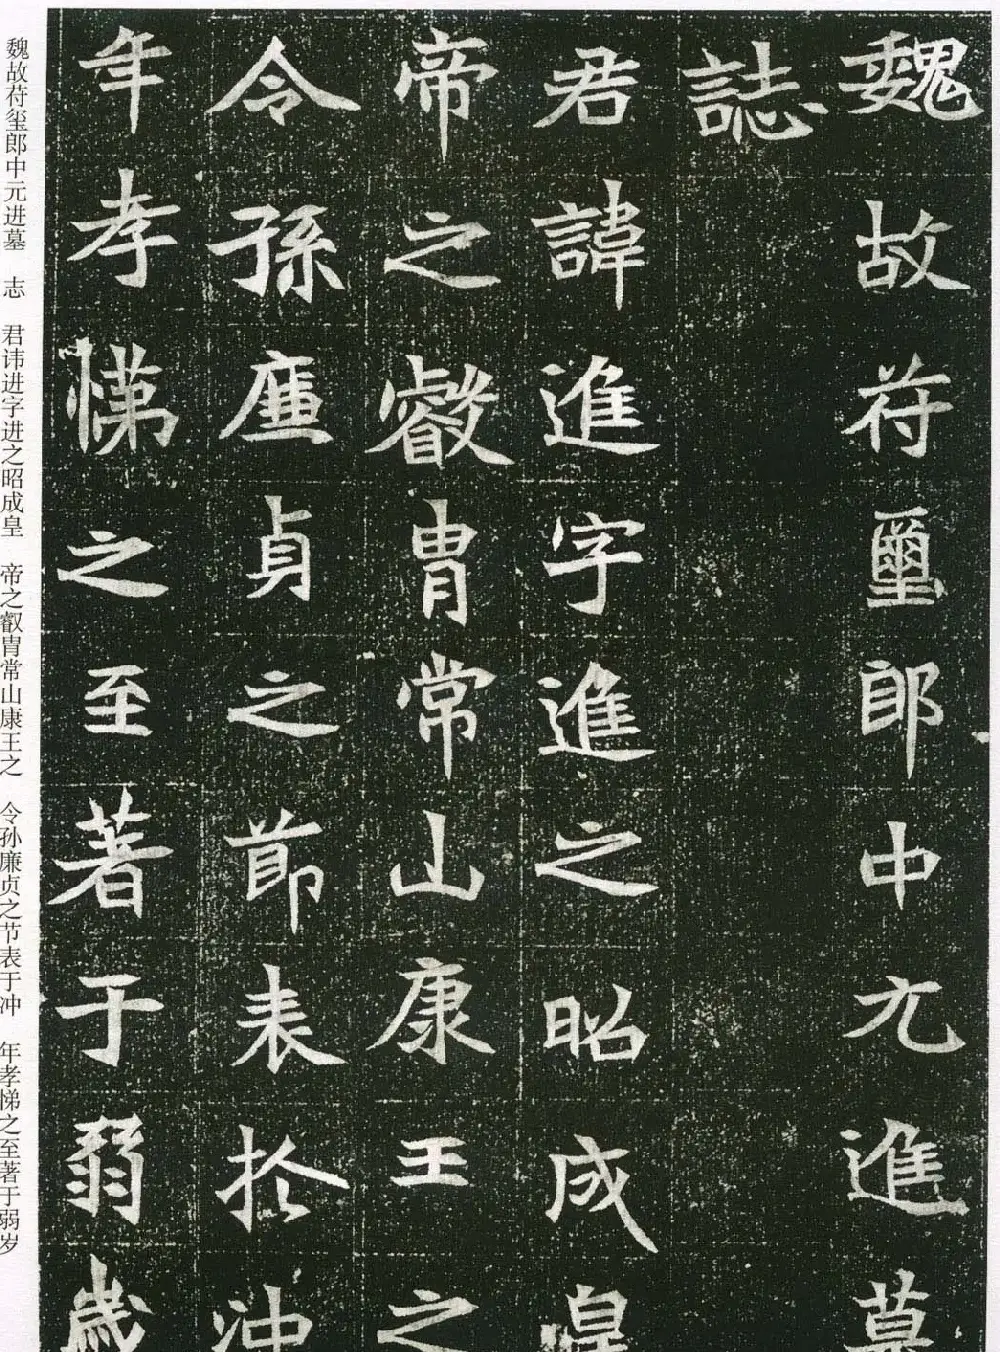 魏故苻璽郎中元進墓
誌
君諱進字進之昭成皇
帝之叡胄常山康王之
令孫廉貞之節表扵沖
年孝悌之至著于弱歳
魏故苻玺郎中元进墓 志 君讳进字进之昭成皇 帝之叡胄常山康王之 令孙廉贞之节表于冲 年孝悌之至著于弱岁